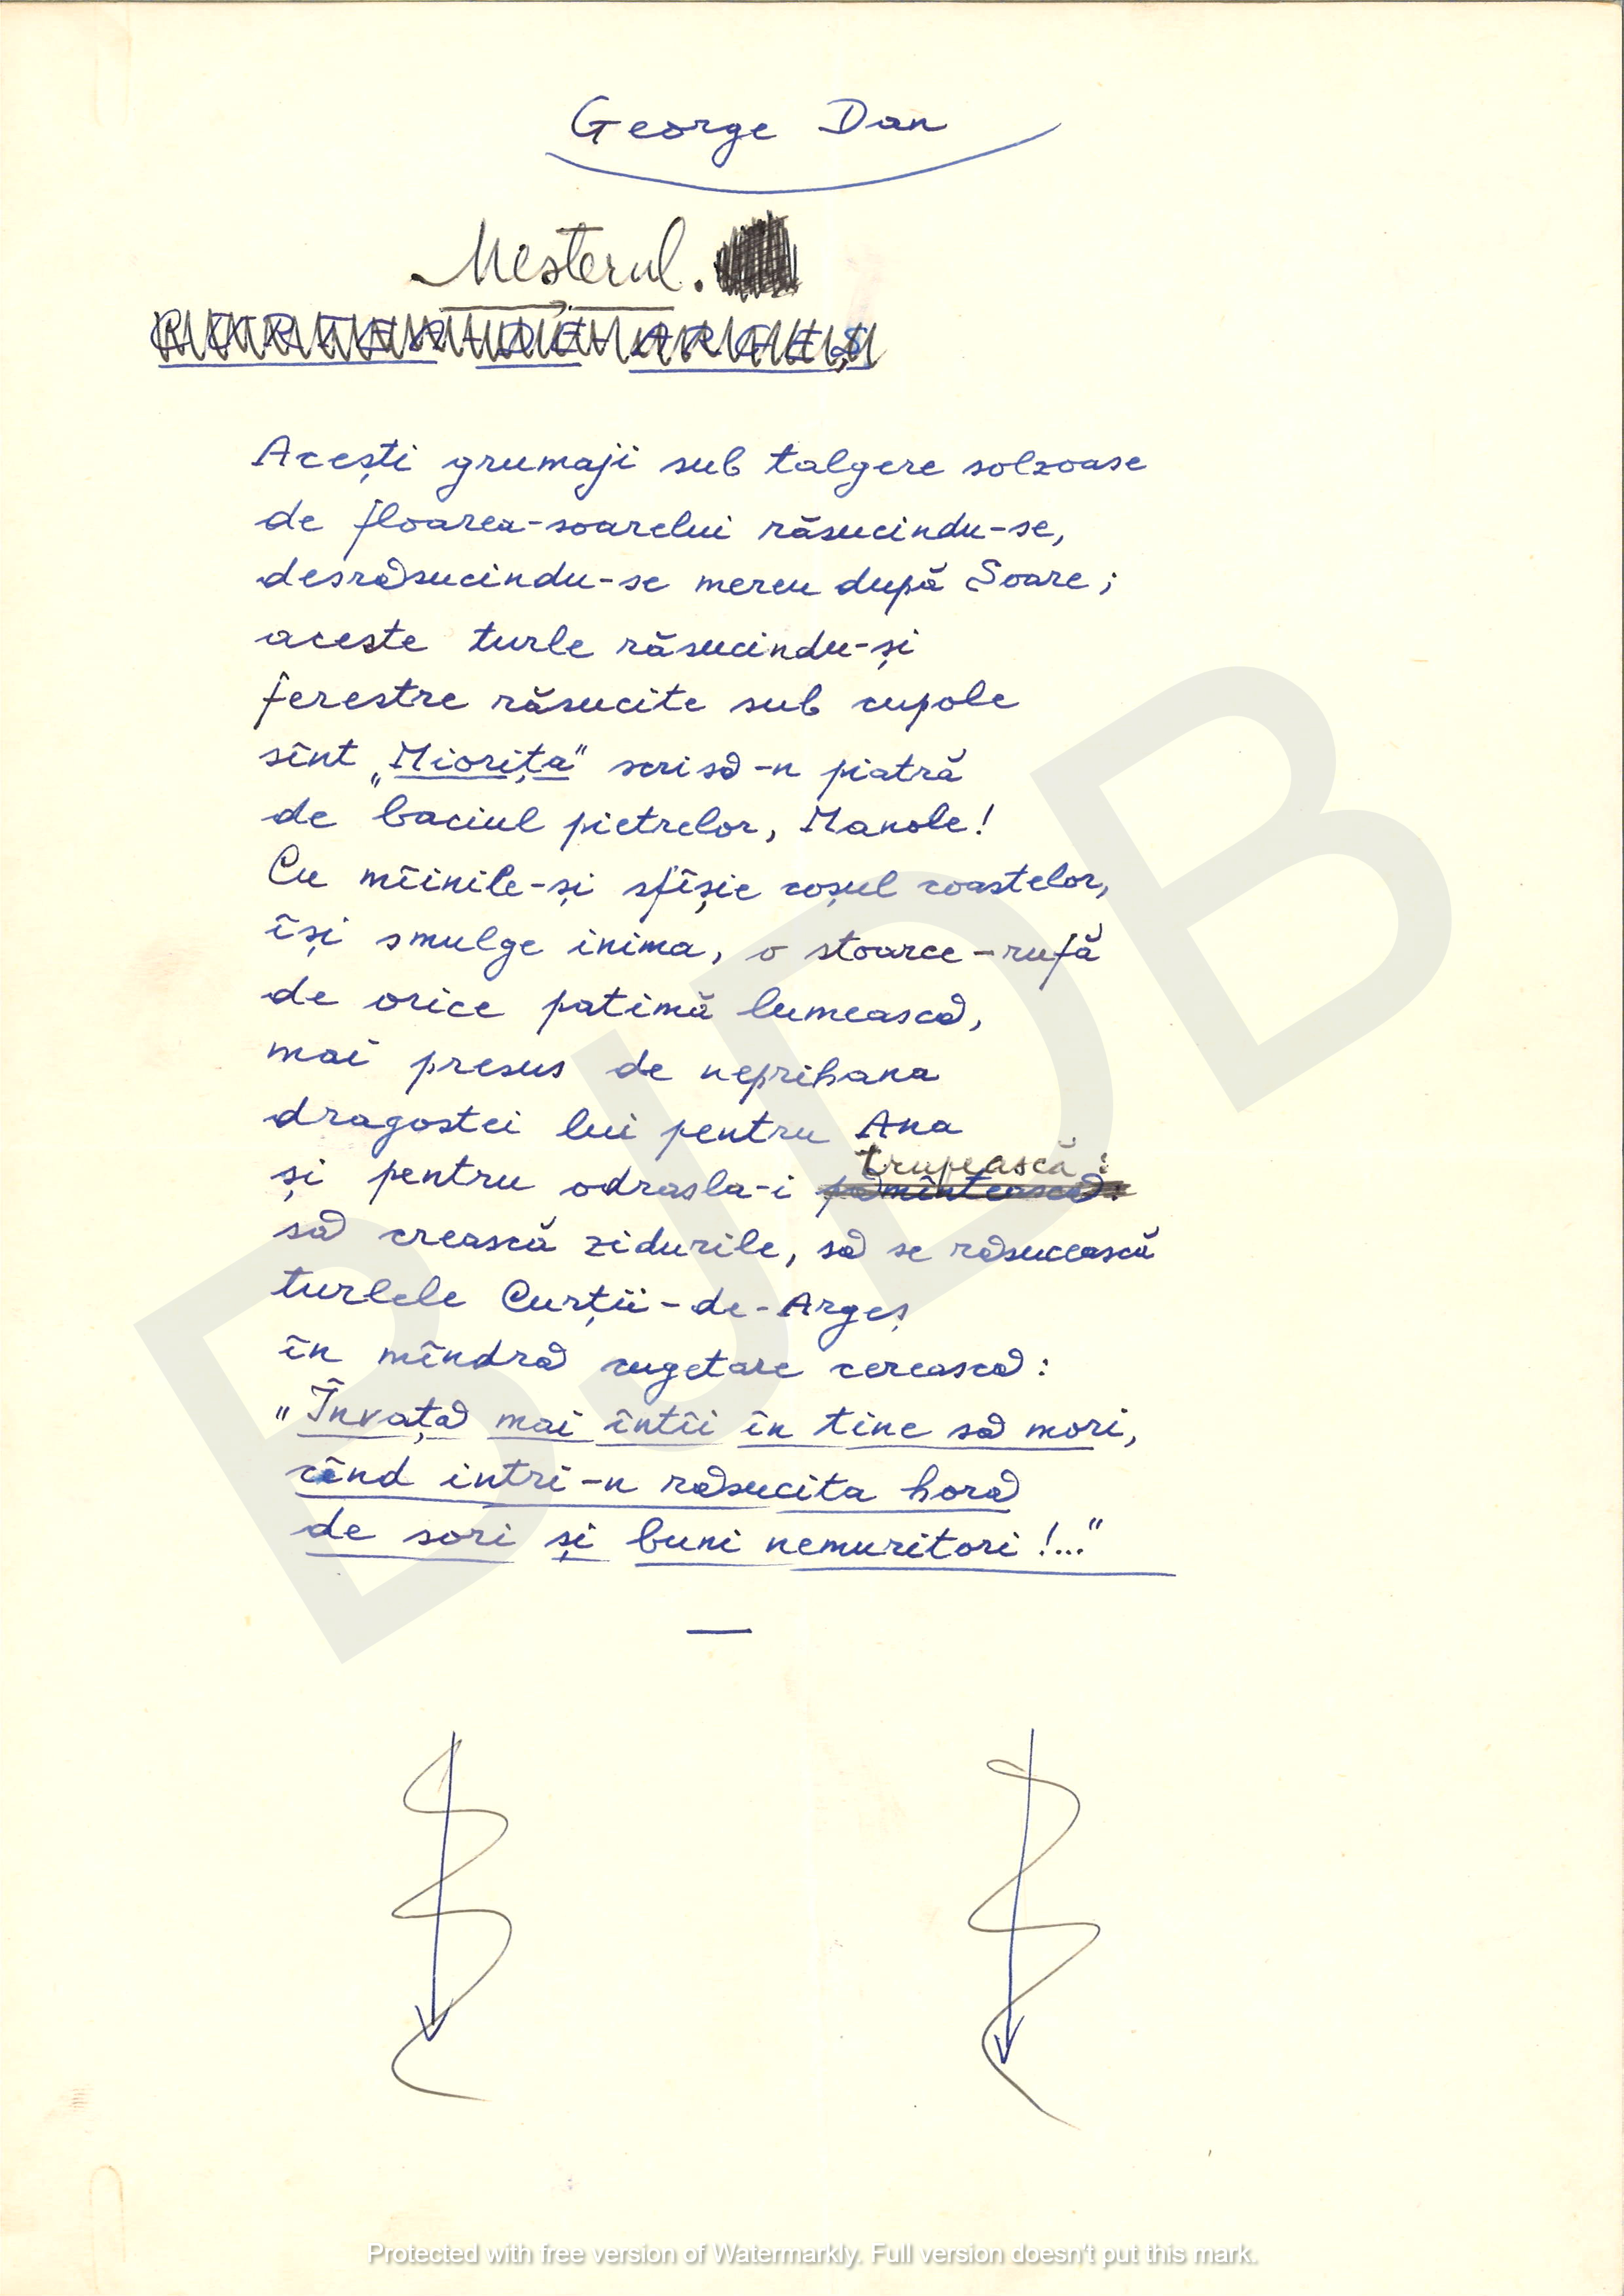 George Dan
Mesterul.
CURTEA-DE-ARGEȘ
Acești grumaji sub talgere solzoase
de floarea-soarelui răsucindu-se,
desrăsucindu-se mereu după Soare;
aceste turle răsucindu-și
ferestre răsucite sub cupole
sînt „Miorița" scrisă-n piatră
de baciul pietrelor, Manole!
Cu mîinile-și sfîșie coșul coastelor,
își smulge inima, o stoarce-rufă
de orice patimă lumească,
mai presus de neprihana
dragostei lui pentru Ana
trupească:
și pentru odrasla-i pămîntească:
să crească zidurile, să se răsucească
turlele Curții-de-Argeș
în mîndră cugetare cerească:
"Învață mai întîi în tine să mori,
cînd intri-n răsucita horă
de sori și buni nemuritori!..."
BJDB
Protected with free version of Watermarkly. Full version doesn't put this mark.